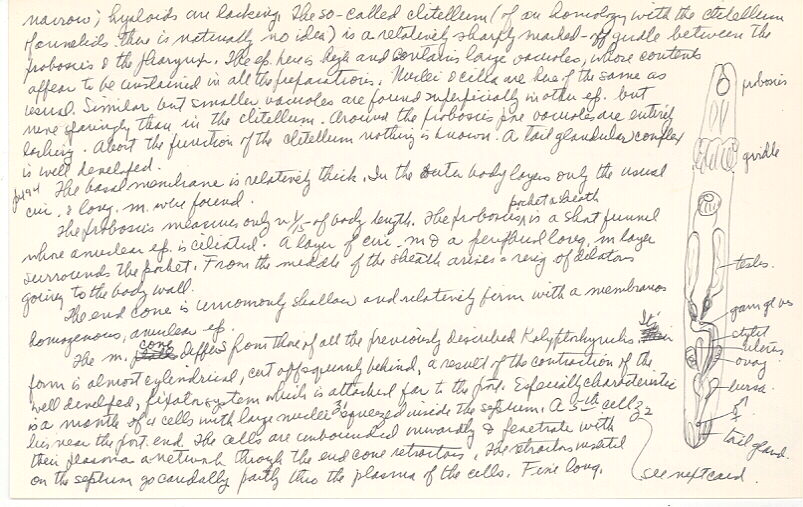 narrow; hyaloids are lacking. The so-called clitellum (of an homology with the clitellum
of annelids there is naturally no idea) is a relatively sharply marked-off girdle between the
proboscis & the pharynx. The ep. here is high and contains large vacuoles, whose contents
appear to be unstained in all the preparations. Nuclei & cilia are here of the same as
usual. Similar but smaller vacuoles are found superficially in other ep. but
more sparingly than in the clitellum. Around the proboscis pore vacuoles are entirely
lacking. About the function of the clitellum nothing is known. A tail glandular complex
is well developed.
p. 194 The basal membrane is relatively thick. In the outer body layers only the usual
cir. & long. m. were found.
pocket & sheath
The proboscis measures only ~ 1/15 of body length. The proboscis is a short funnel
whose anuclear ep. is ciliated. A layer of cir. m & a peripheral long. m layer
surrounds the pocket. From the middle of the sheath arises a ring of dilators
going to the body wall.
The end cone is uncommonly shallow and relatively firm with a membranous
homogenous, anuclear ep.
The m. cone differs from those of all the previously described Kalyptorhynchia. It's
form is almost cylindrical, cut off squarely behind, a result of the contraction of the
well developed, fixator system which is attached far to the post. Especially characteristic
is a month of 4 cells with large nuclei squeezed inside the septum. A 5th cell
lies near the post. end. The cells are unbounded inwardly & penetrate with
their plasma a network through the end cone retractors. The retractors inserted
on the septum go caudally partly thro the plasma of the cells. Five long.
see next card.
proboscis
girdle
testes.
germ glands
stylet
uterus
ovary
bursa.
♂
♀
tail gland.